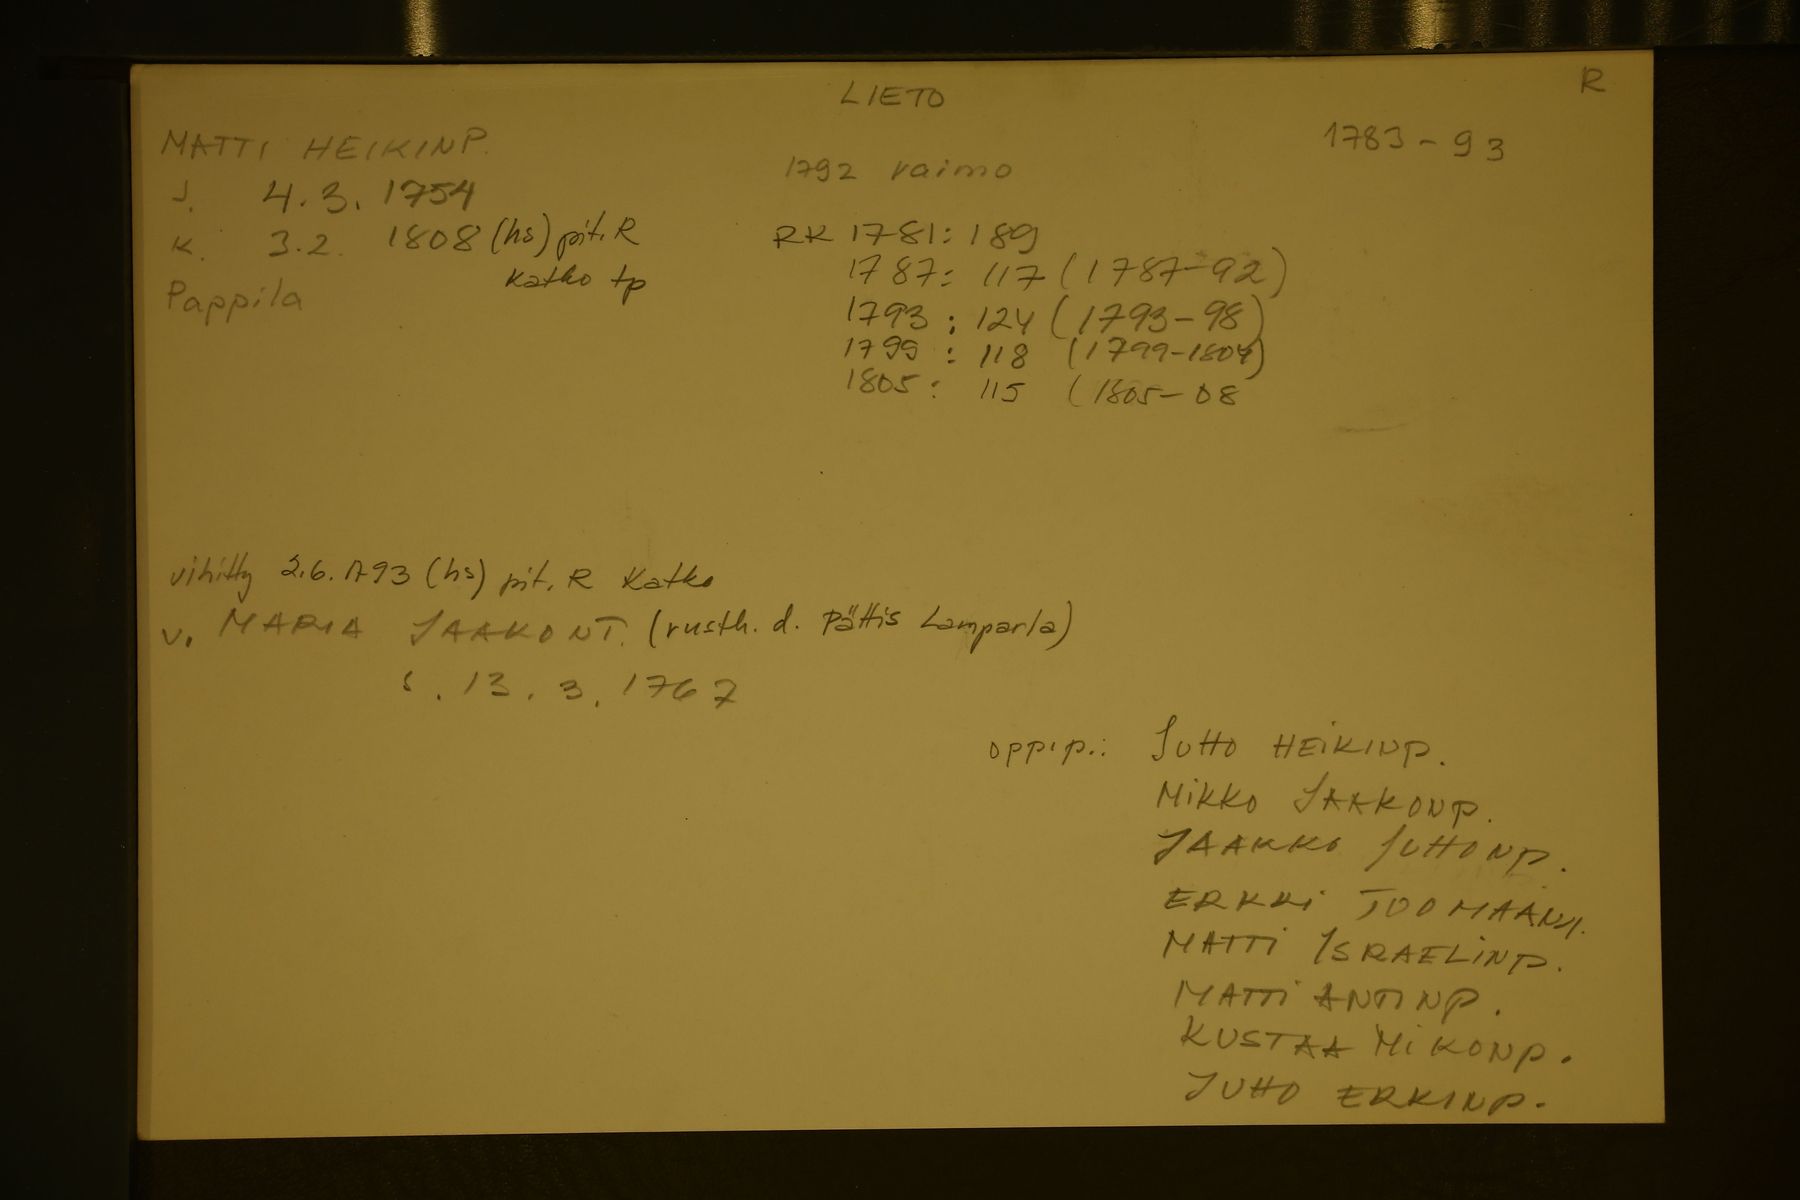 LIETO
R
MATTI HEIKINP.
1783-93
s. 4.3.1754
1792 vaimo
k. 3.2. 1808 (hs) pit. R
Katko tp
Pappila
RK 1781: 189
1787: 117 (1787-92)
1793: 124 (1793-98)
1799: 118 (1799-1804)
1805: 115 (1805-08
vihitty 2.6.1793 (hs) pit. R Katko
v. MARIA JAAKONT. (rusth. d. Pättis Lamparla)
s. 13.3.1767
oppip.: JUHO HEIKINP.
MIKKO JAAKONP.
JAAKKO JUHONP.
ERKKI TOOMAANP.
MATTI ISRAELINP.
MATTI ANTINP.
KUSTAA MIKONP.
JUHO ERKINP.